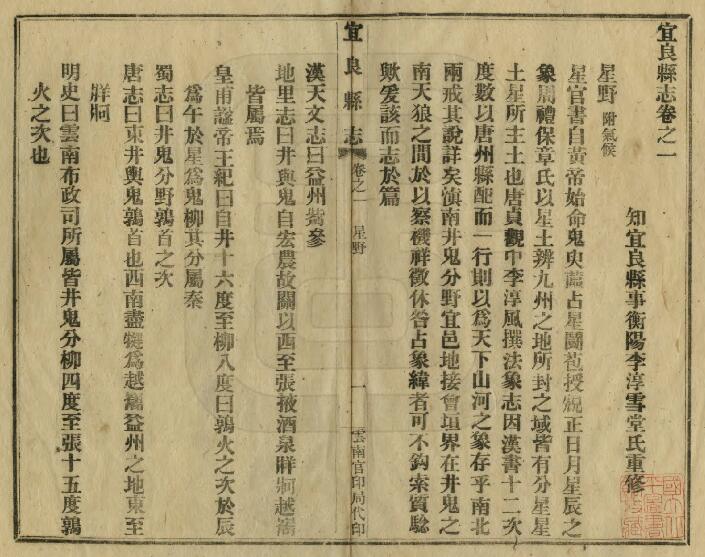 宜良縣志卷之一
知宜良縣事衡陽李淳雪堂氏重修
星野 附氣候
星官書自黄帝始命鬼臾蓲占星鬭苞授規正日月星辰之
象周禮保章氏以星土辨九州之地所封之域皆有分星星
土星所主土也唐貞觀中李淳風撰法象志因漢書十二次
度數以唐州縣配而一行則以爲天下山河之象存乎南北
兩戒其說詳矣滇南井鬼分野宜邑地接會垣界在井鬼之
南天狼之間於以察機祥徵休咎占象緯者可不鈎索質驗
歟爰該而志於篇
宜良縣志
卷之一 星野
一
雲南官印局代印
漢天文志曰益州觜參
地里志曰井與鬼自宏農故關以西至張掖酒泉牂牁越嶲
皆屬焉
皇甫謐帝王紀曰自井十六度至柳八度曰鶉火之次於辰
爲午於星爲鬼柳其分屬秦
蜀志曰井鬼分野鶉首之次
唐志曰東井輿鬼鶉首也西南盡犍爲越嶲益州之地東至
牂牁
明史曰雲南布政司所屬皆井鬼分柳四度至張十五度鶉
火之次也